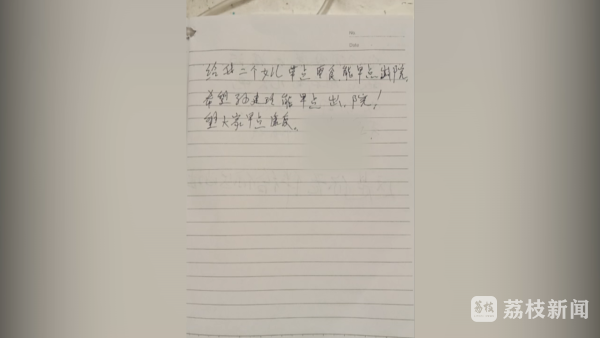 No
Date
给我二个女儿早点康复,能早点出院,
希望 能早点出院!
望大家早点康复。
荔枝 荔枝新闻